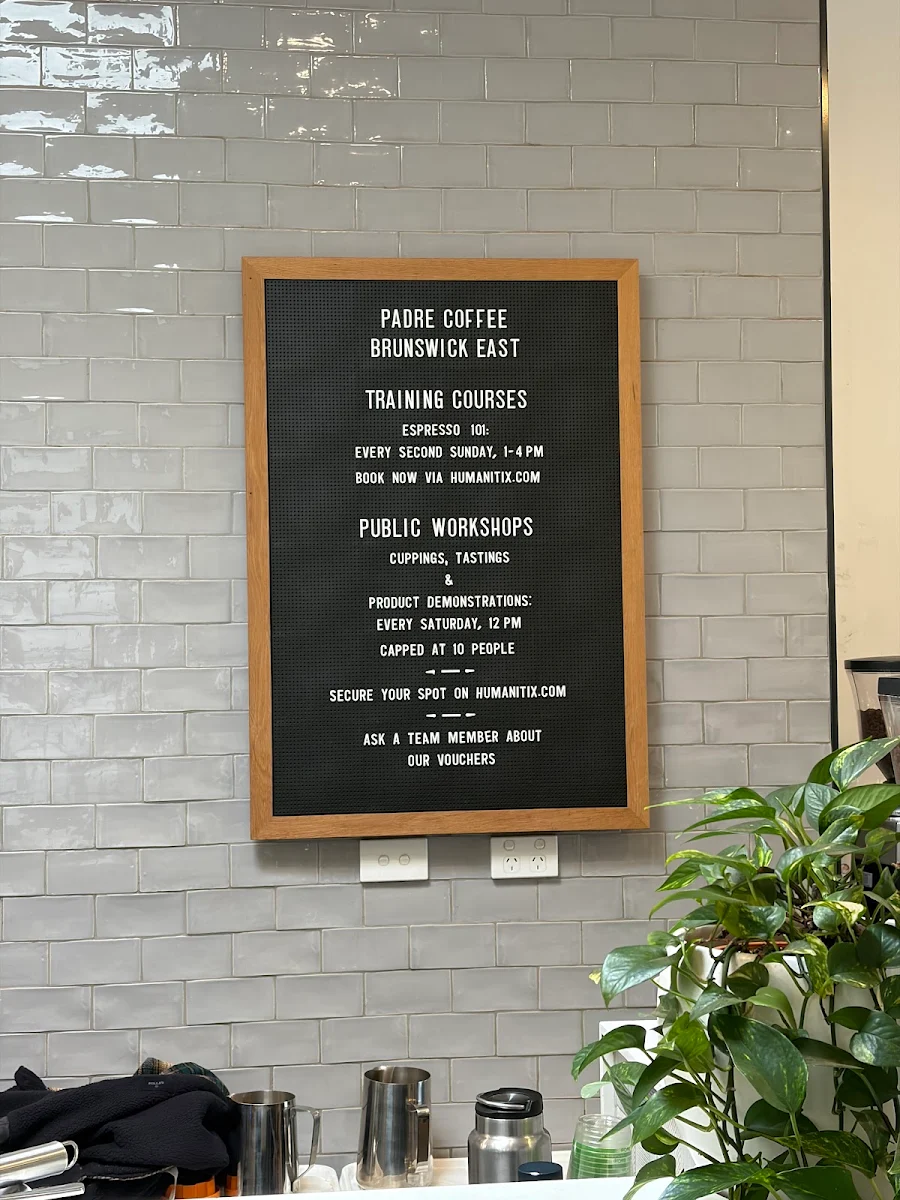 PADRE COFFEE
BRUNSWICK EAST
TRAINING COURSES
ESPRESSO 101:
EVERY SECOND SUNDAY, 1-4 PM
BOOK NOW VIA HUMANITIX.COM
PUBLIC WORKSHOPS
CUPPINGS, TASTINGS
&
PRODUCT DEMONSTRATIONS:
EVERY SATURDAY, 12 PM
CAPPED AT 10 PEOPLE
SECURE YOUR SPOT ON HUMANITIX.COM
ASK A TEAM MEMBER ABOUT
OUR VOUCHERS